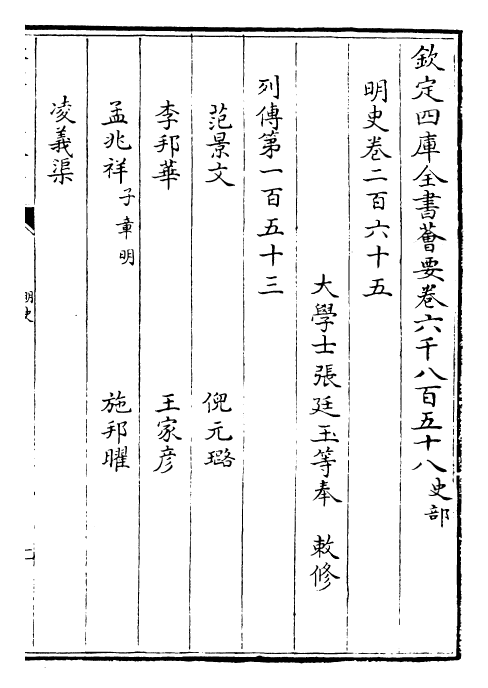 欽定四庫全書薈要卷六千八百五十八史部
明史卷二百六十五
大學士張廷玉等奉 敕修
列傳第一百五十三
范景文 倪元璐
李邦華 王家彦
孟兆祥子章明 施邦曜
凌義渠
明史